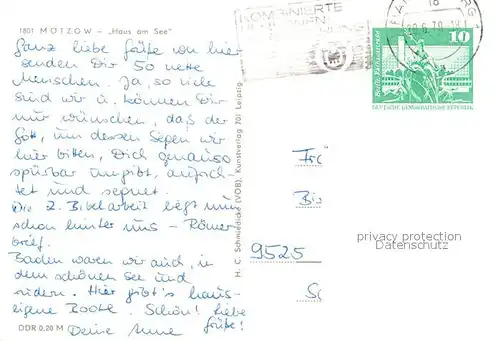 1801 MÖTZOW – „Haus am See"
Ganz liebe Grüße von hier
senden Dir 50 nette
Menschen. Ja, so viele
sind wir u. können Dir
nur wünschen, daß der
Gott, um dessen Segen wir
hier bitten, Dich genauso
spürbar umgibt, aufrich-
tet und segnet.
Die 2. Bibelarbeit liegt nun
schon hinter uns – Römer
brief.
Baden waren wir auch, in
dem schönen See und
rudern. Hier gibt's haus-
eigene Boote. Schön! Liebe
Grüße!
Deine Anne
DDR 0,20 M
H. C. Schmiedicke (VOB), Kunstverlag 701 Leipzig
KOMBINIERTE
18
10
DEUTSCHE DEMOKRATISCHE REPUBLIK
9525
privacy protection
Datenschutz